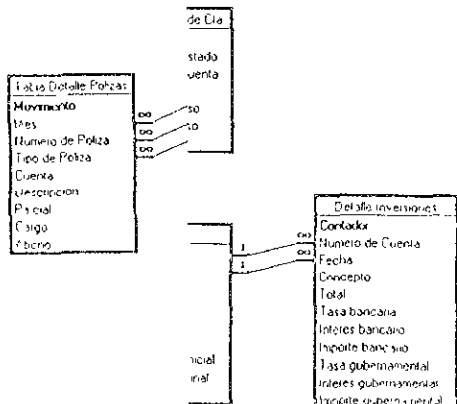 de Cta
stado
uenta
so
so
Tabla Detalle Polizas
Movimiento
Mes
Numero de Poliza
Tipo de Poliza
Cuenta
Descripcion
Parcial
Cargo
Abono
∞
∞
∞
1
1
∞
∞
nicial
inal
Detalle inversiones
Contador
Numero de Cuenta
Fecha
Concepto
Total
Tasa bancaria
Interes bancario
Importe bancario
Tasa gubernamental
Interes gubernamental
Importe gubernamental